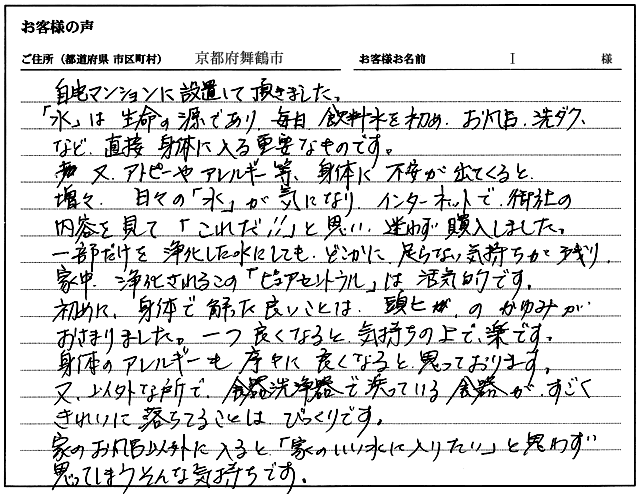 お客様の声
ご住所（都道府県 市区町村） 京都府舞鶴市 お客様お名前 I 様
自宅マンションに設置して頂きました。
「水」は生命の源であり 毎日 飲料水を初め、お風呂、洗タク、
など、直接 身体に入る重要なものです。
又、アトピーやアレルギー等、身体に 不安が出てくると、
増々、日々の「水」が 気になり、インターネットで、御社の
内容を見て「これだ!!」と思い、迷わず購入しました。
一部だけを 浄化した水にしても、どこかに、足らない気持ちが残り、
家中、浄化されるこの「ピュアセントラル」は 活気的です。
初めに、身体で 解った良いことは、頭ヒが、の かゆみが
おさまりました。一つ 良くなると、気持ちの上で、楽です。
身体のアレルギーも 序々に 良くなると、思っております。
又、以外な所で、食器洗浄器で洗っている 食器が、すごく
きれいに 落ちてることは、びっくりです。
家のお風呂以外に入ると、「家のいい水に入りたい」と思わず
思ってしまうそんな気持ちです。